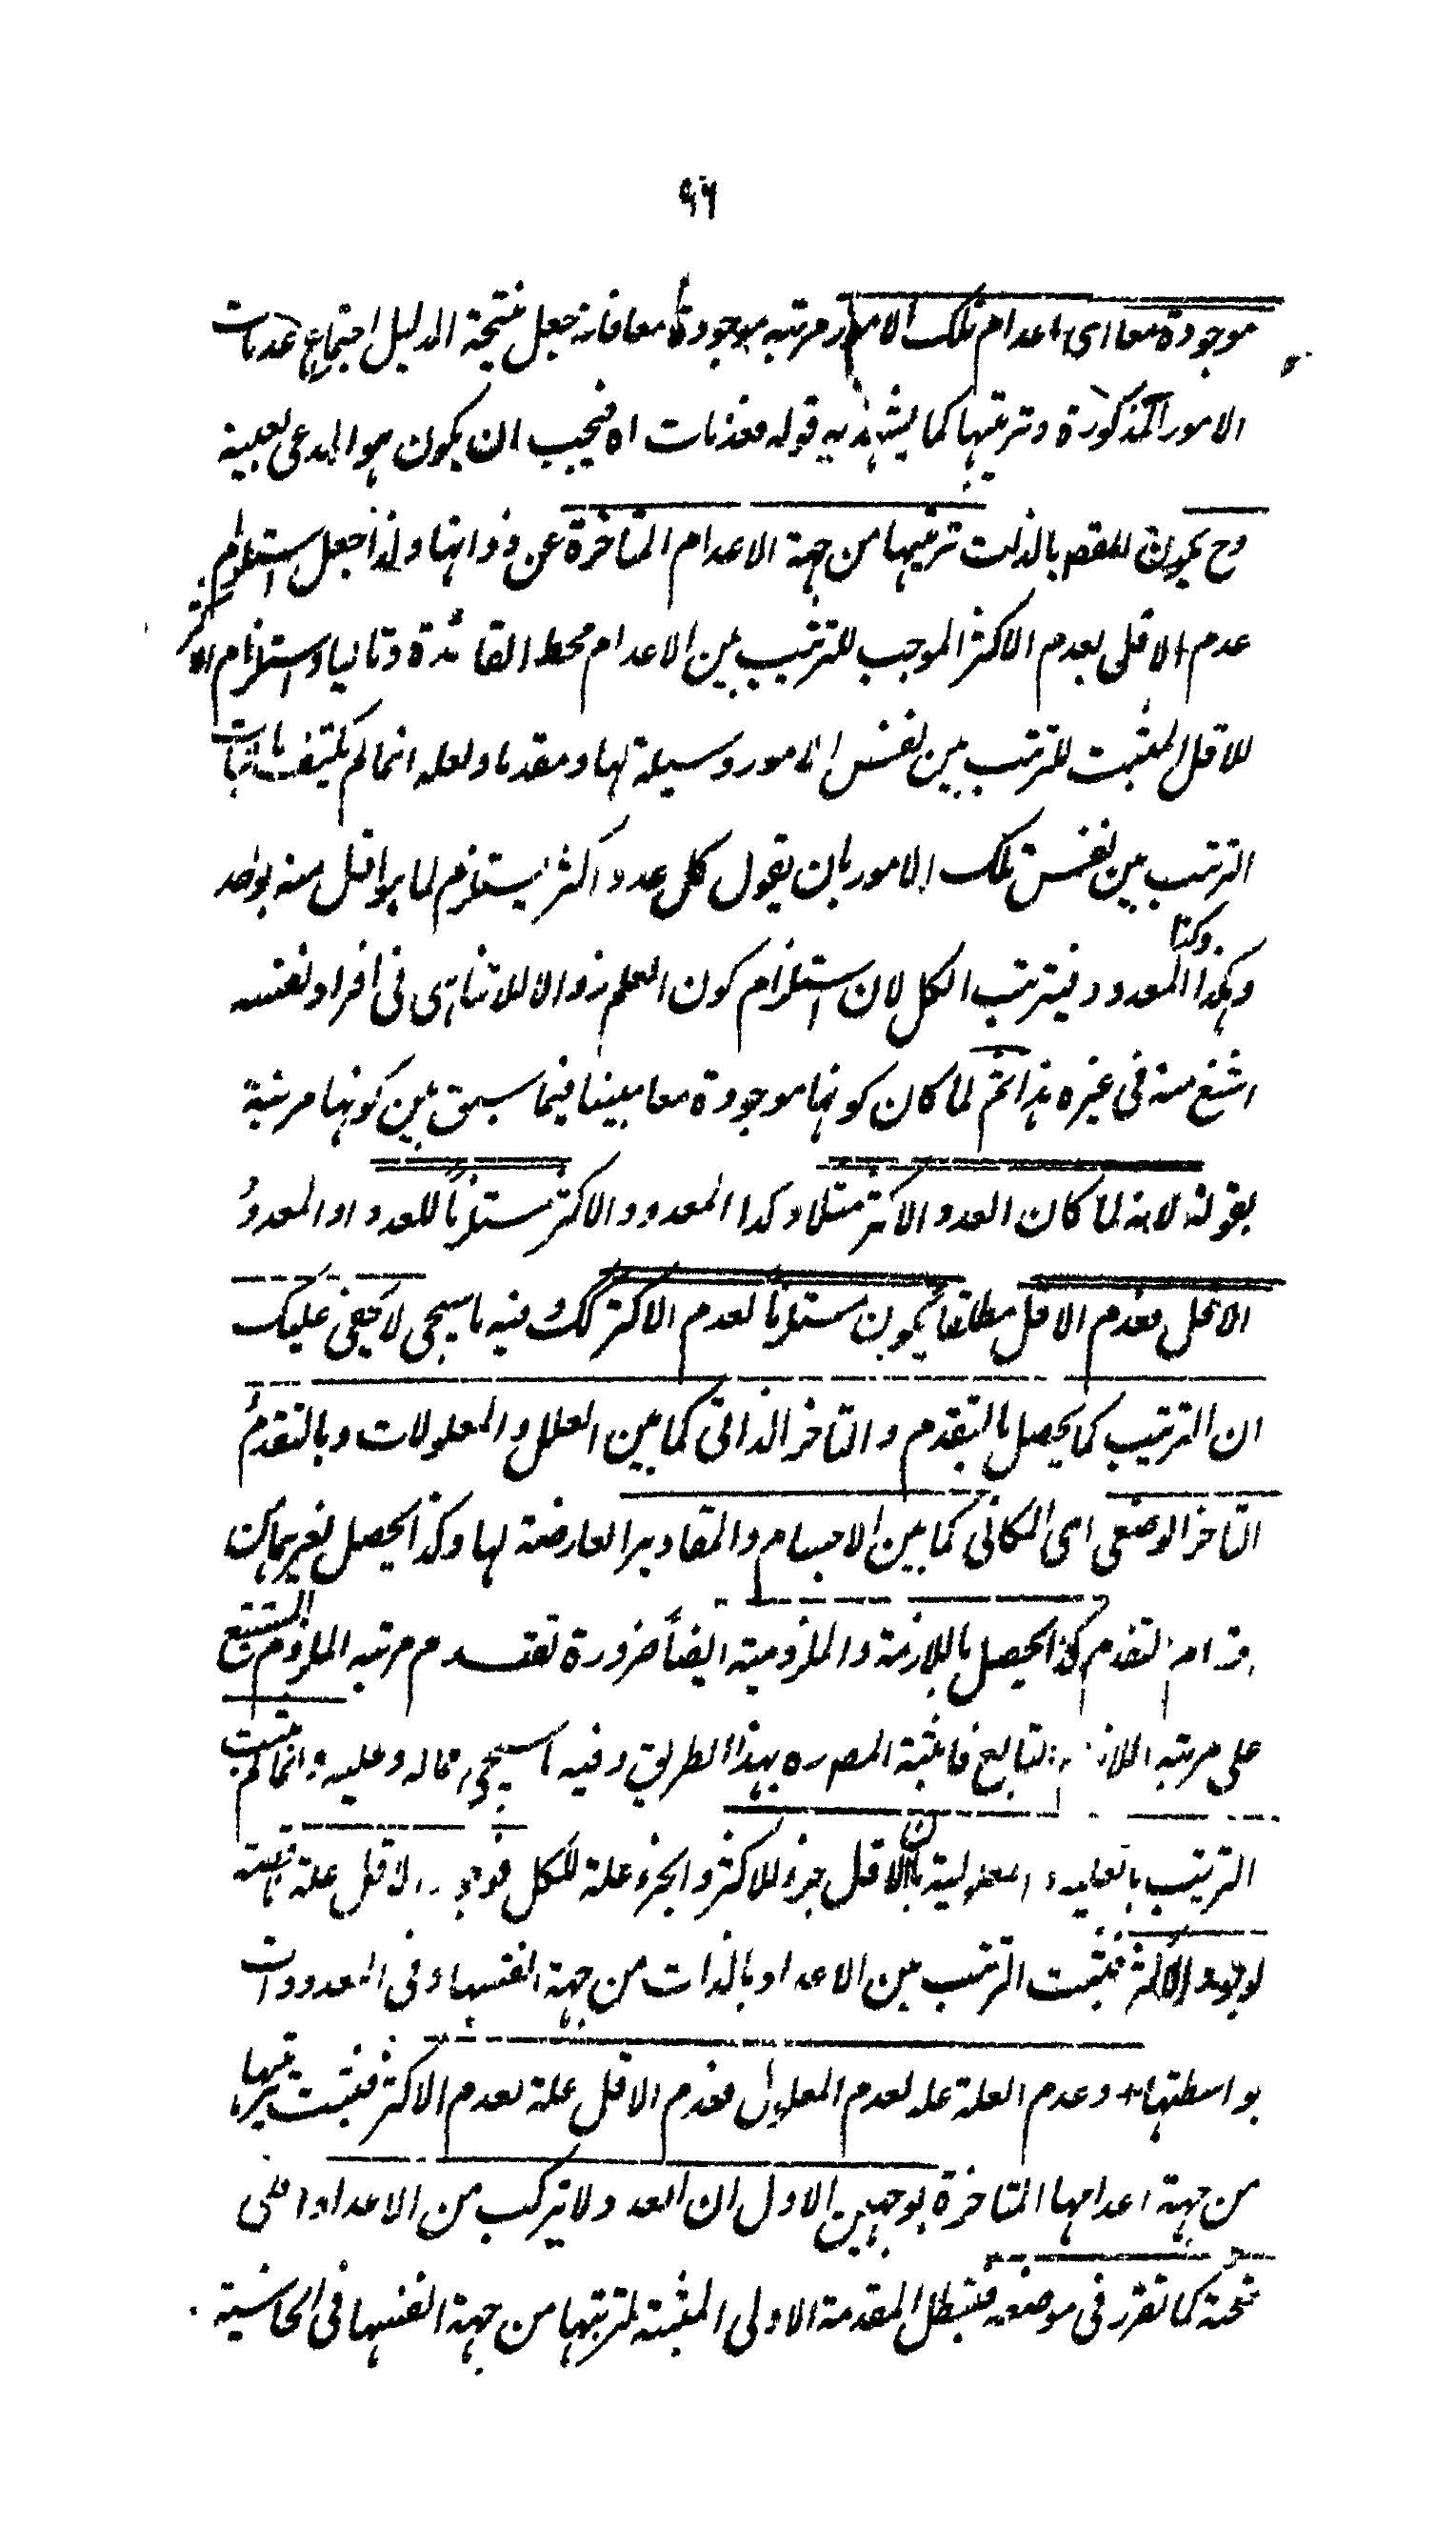 ٩٦
موجودة معا اى اعدام تلك الامور مرتبه موجودة معا فانه جعل نتيجة الدليل اجتماع عدمات
الامور المذكورة وترتبها كما يشهد به قوله فعدمات اه فيجب ان يكون هو المدعى بعينه
وح يكون المقصـ بالذات ترتبها من جهة الاعدام المتاخرة عن ذواتها ولذا جعل استلزام
عدم الاقل بعدم الاكثر الموجب للترتيب بين الاعدام محط الفائدة وتاليا واستلزام الاكثر
للاقل المثبت للترتب بين نفس الامور وسيلة لها ومقدما ولعله انما لم يكتف باثبات
الترتب بين نفس تلك الامور بان يقول كل عدد اكثر يستلزم لما هو اقل منه بواحد
وهكذا وكذا المعدود فيترتب الكل لان استلزام كون العلم زوالا للاتناهى فى افراد نفسه
اشنع منه فى غيره هذا ثم لما كان كونها موجودة معا مبينا فيما سبق بين كونها مرتبة
بقوله لانه لما كان العدد الاكثر مثلا وكذا المعدود الاكثر مستلزما للعدد او المعدود
الاقل فعدم الاقل مطلقا يكون مستلزما لعدم الاكثر كك فيه ما سيجى لا يخفى عليك
ان الترتيب كما يحصل بالتقدم والتاخر الذاتى كما بين العلل والمعلولات وبالتقدم
التاخر الوضعى اى المكانى كما بين الاجسام والمقادير العارضة لها وكذا يحصل بغيرهما من
التقدم كذا يحصل باللازمة والملزومية ايضا ضرورة تقدم مرتبه الملزوم المستتبع
على مرتبه اللازم التابع فاثبته المصـ ره بهذا الطريق وفيه ما سيجى ماله وعليه وانما لم يثبت
الترتيب بالعلية والمعلولية بان الاقل جزء للاكثر والجزء علة للكل فوجود الاقل علة
لوجود الاكثر فيثبت الترتب بين الاعداد بالذات من جهة انفسها وفى المعدودات
بواسطتها وعدم العلة علة لعدم المعلول فعدم الاقل علة لعدم الاكثر فيثبت ترتبها
من جهة اعدامها المتاخرة بوجهين الاول ان العدد لا يتركب من الاعداد التى
تحته كما تقرر فى موضعه فتبطل المقدمة الاولى المثبتة لترتبها من جهة انفسها فى الحاشية